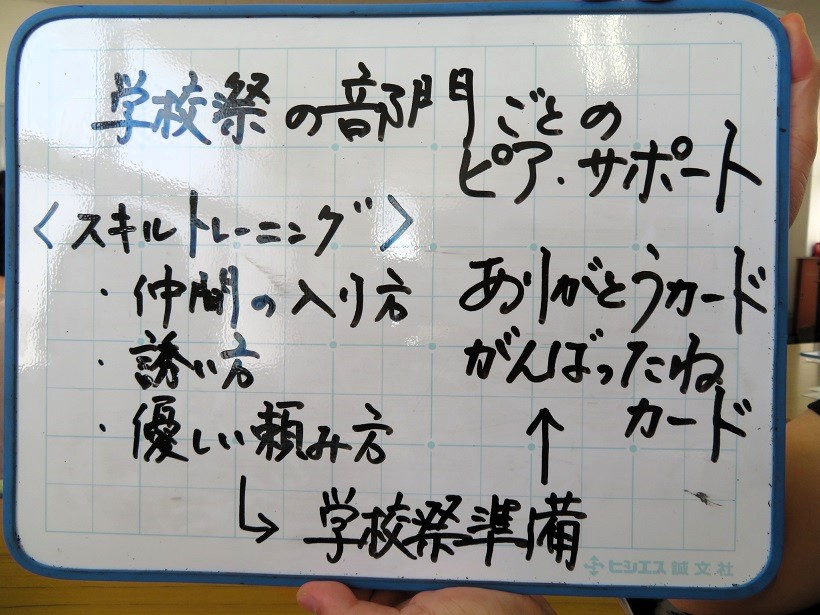 学校祭の部門ごとの
ピア・サポート
〈スキルトレーニング〉
・仲間の入り方
・誘い方
・優しい頼み方
↳ 学校祭準備
↑
ありがとうカード
がんばったね
カード
ヒシエス誠文社